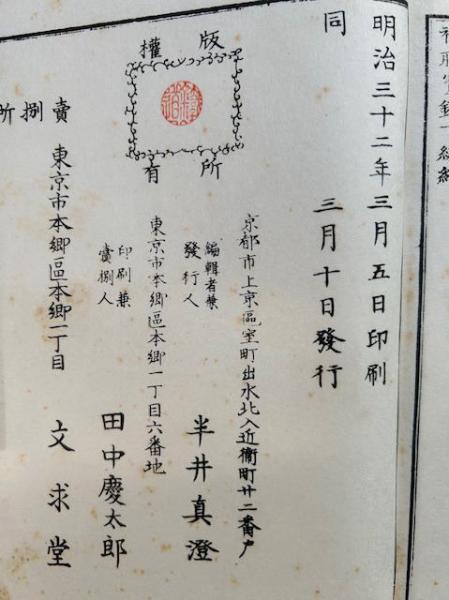 明治三十二年三月五日印刷
同　　　三月十日發行
版權所有
京都市上京區室町出水北入近衛町廿二番戶
編輯者兼發行人　半井真澄
東京市本鄉區本鄉一丁目六番地
印刷兼賣捌人　田中慶太郎
賣捌所　東京市本鄉區本鄉一丁目　文求堂